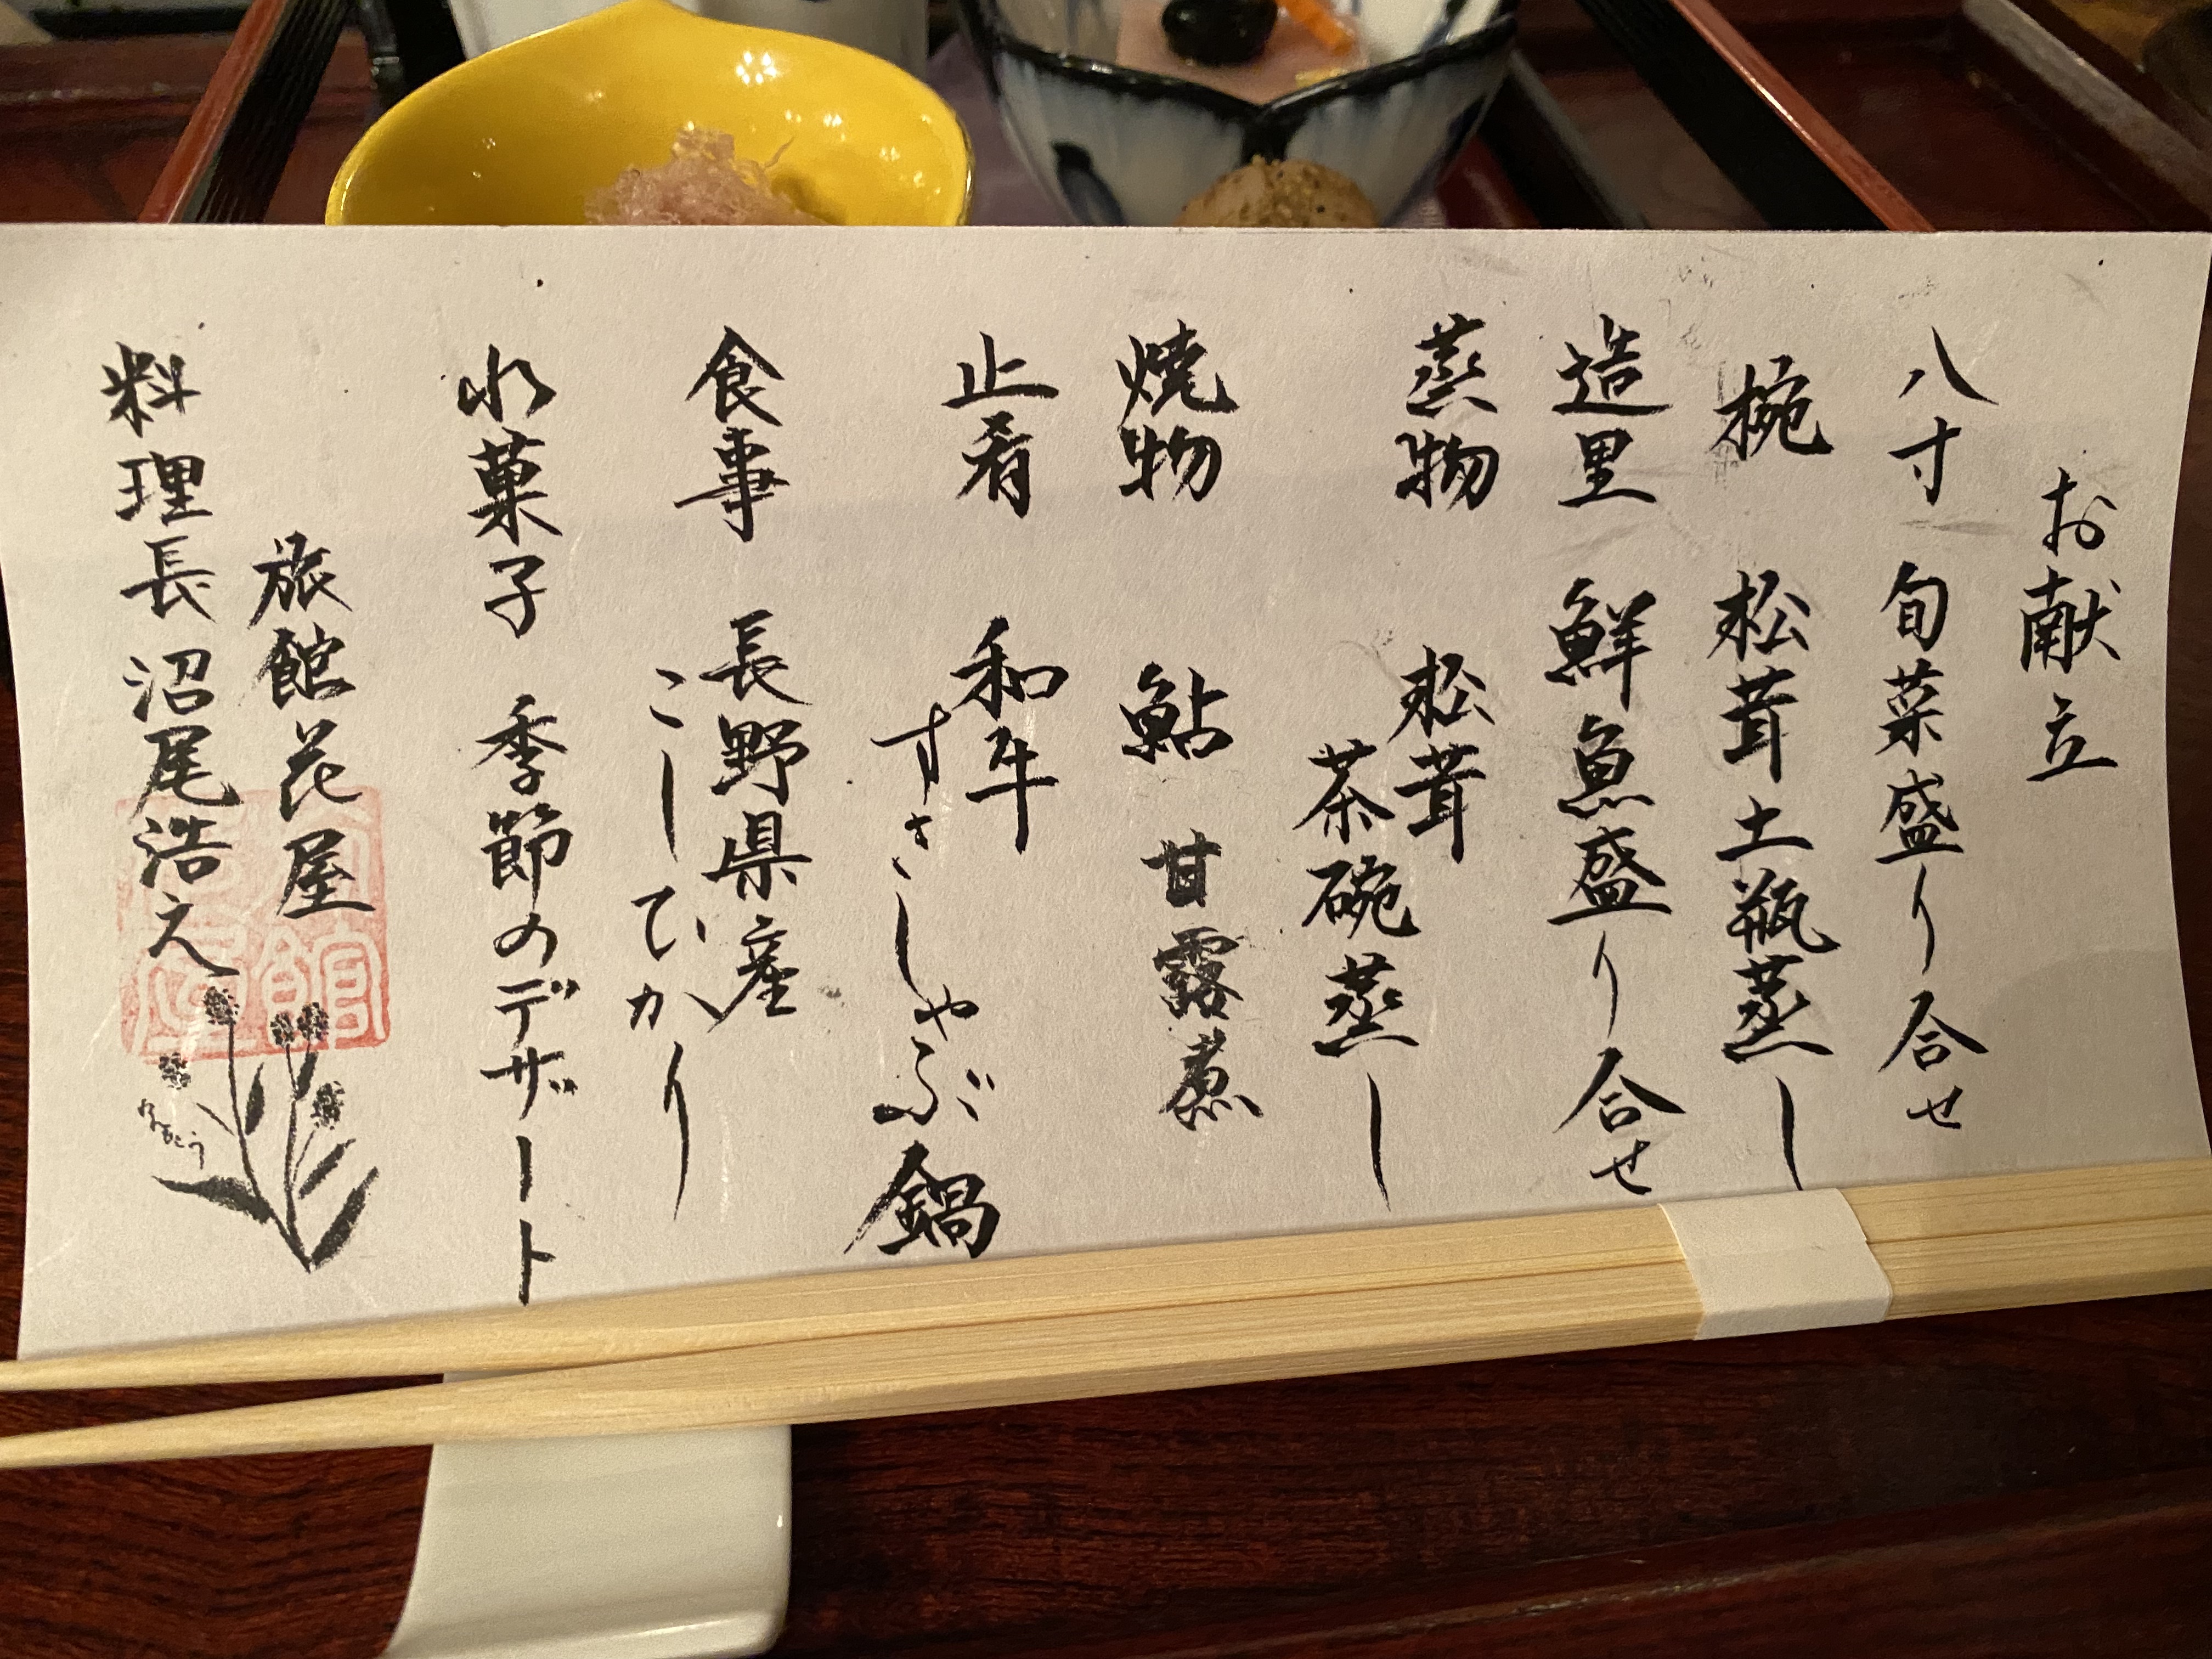 お献立
八寸 旬菜盛り合せ
椀 松茸土瓶蒸し
造里 鮮魚盛り合せ
蒸物 松茸
茶碗蒸し
焼物 鮎 甘露煮
止肴 和牛
すきしゃぶ鍋
食事 長野県産
こしひかり
水菓子 季節のデザート
旅館花屋
料理長 沼尾浩之